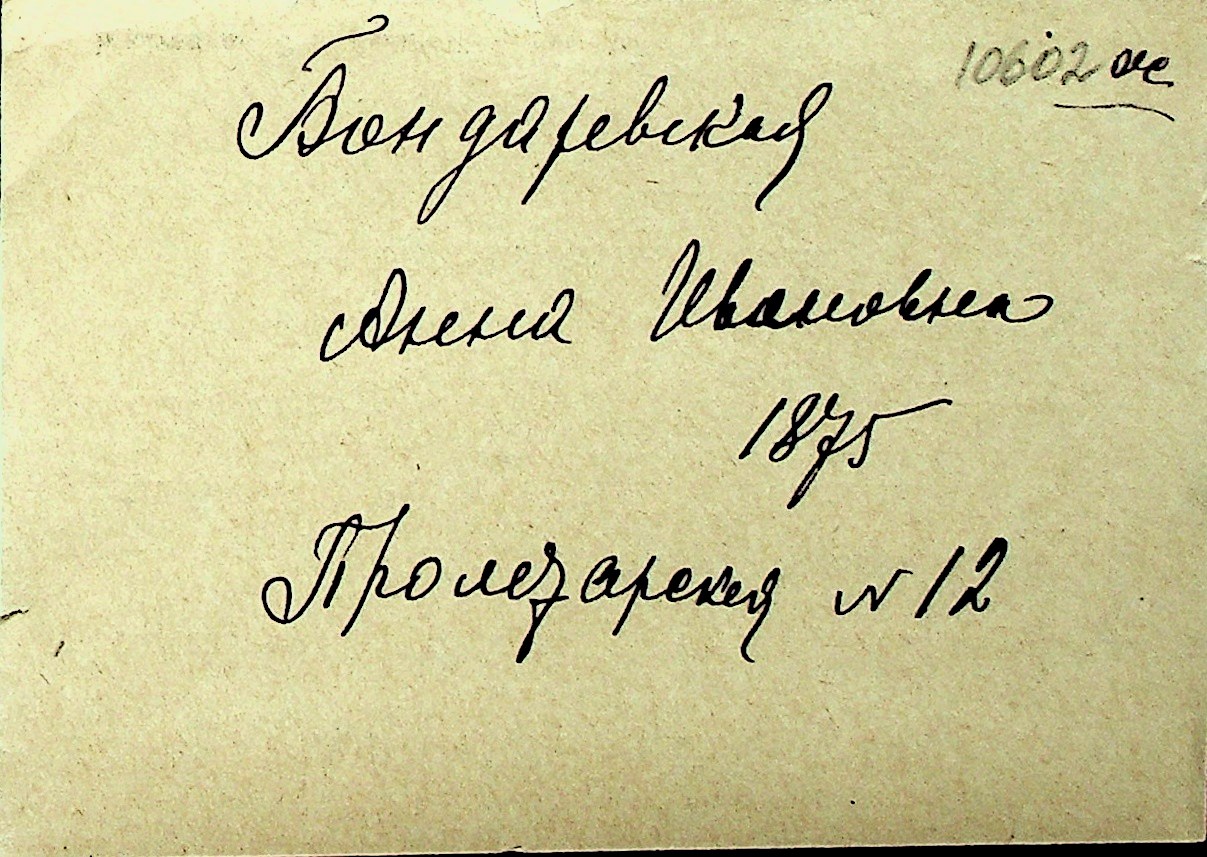 10602 ис
Бондаревская
Анна Ивановна
1875
Пролетарская N 12